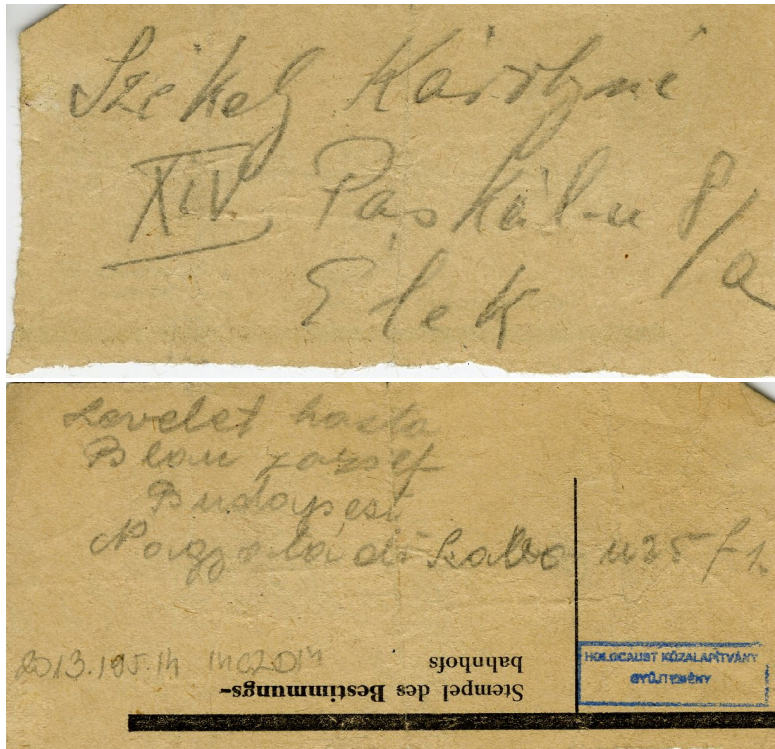 Székely Károlyné
XIV. Paskál-u 8/a
Elek
Levelet hozta
Blau József
Budapest
Nagyatádi Szabó u 25 f 1.
2013.195.14
Stempel des Bestimmungs-
bahnhofs
HOLOCAUST KÖZALAPÍTVÁNY
GYŰJTEMÉNY